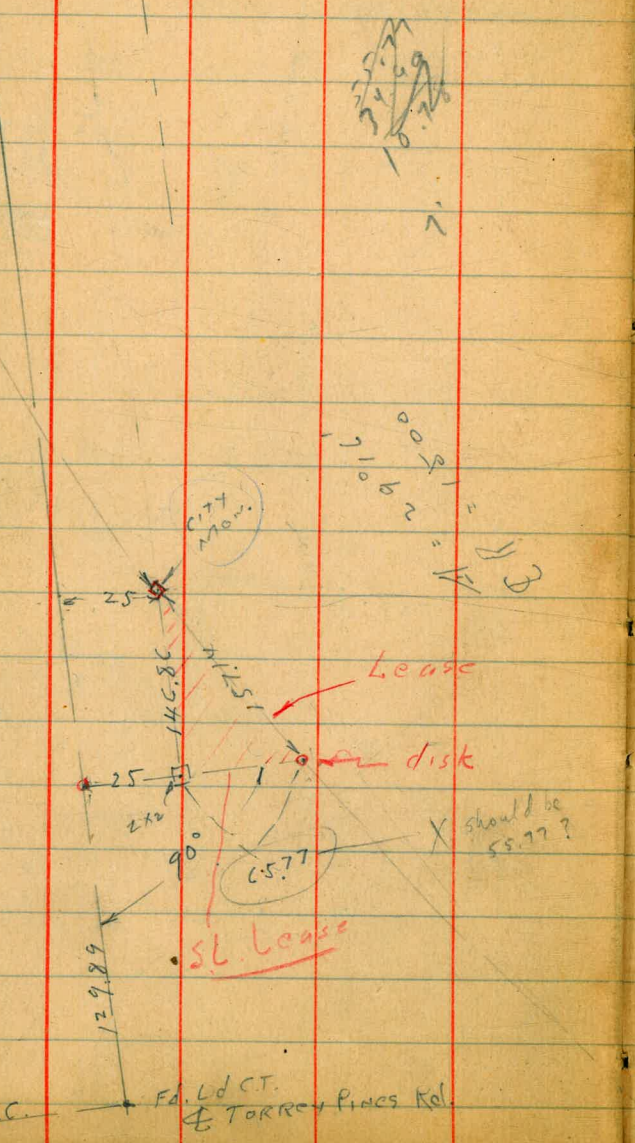 CITY
MON.
25
146.86
157.14
Lease
disk
25
2x2
90°
65.77
X should be
55.77?
SL. Lease
129.89
C.
Fd. Ld C.T.
℄ TORREY PINES Rd.